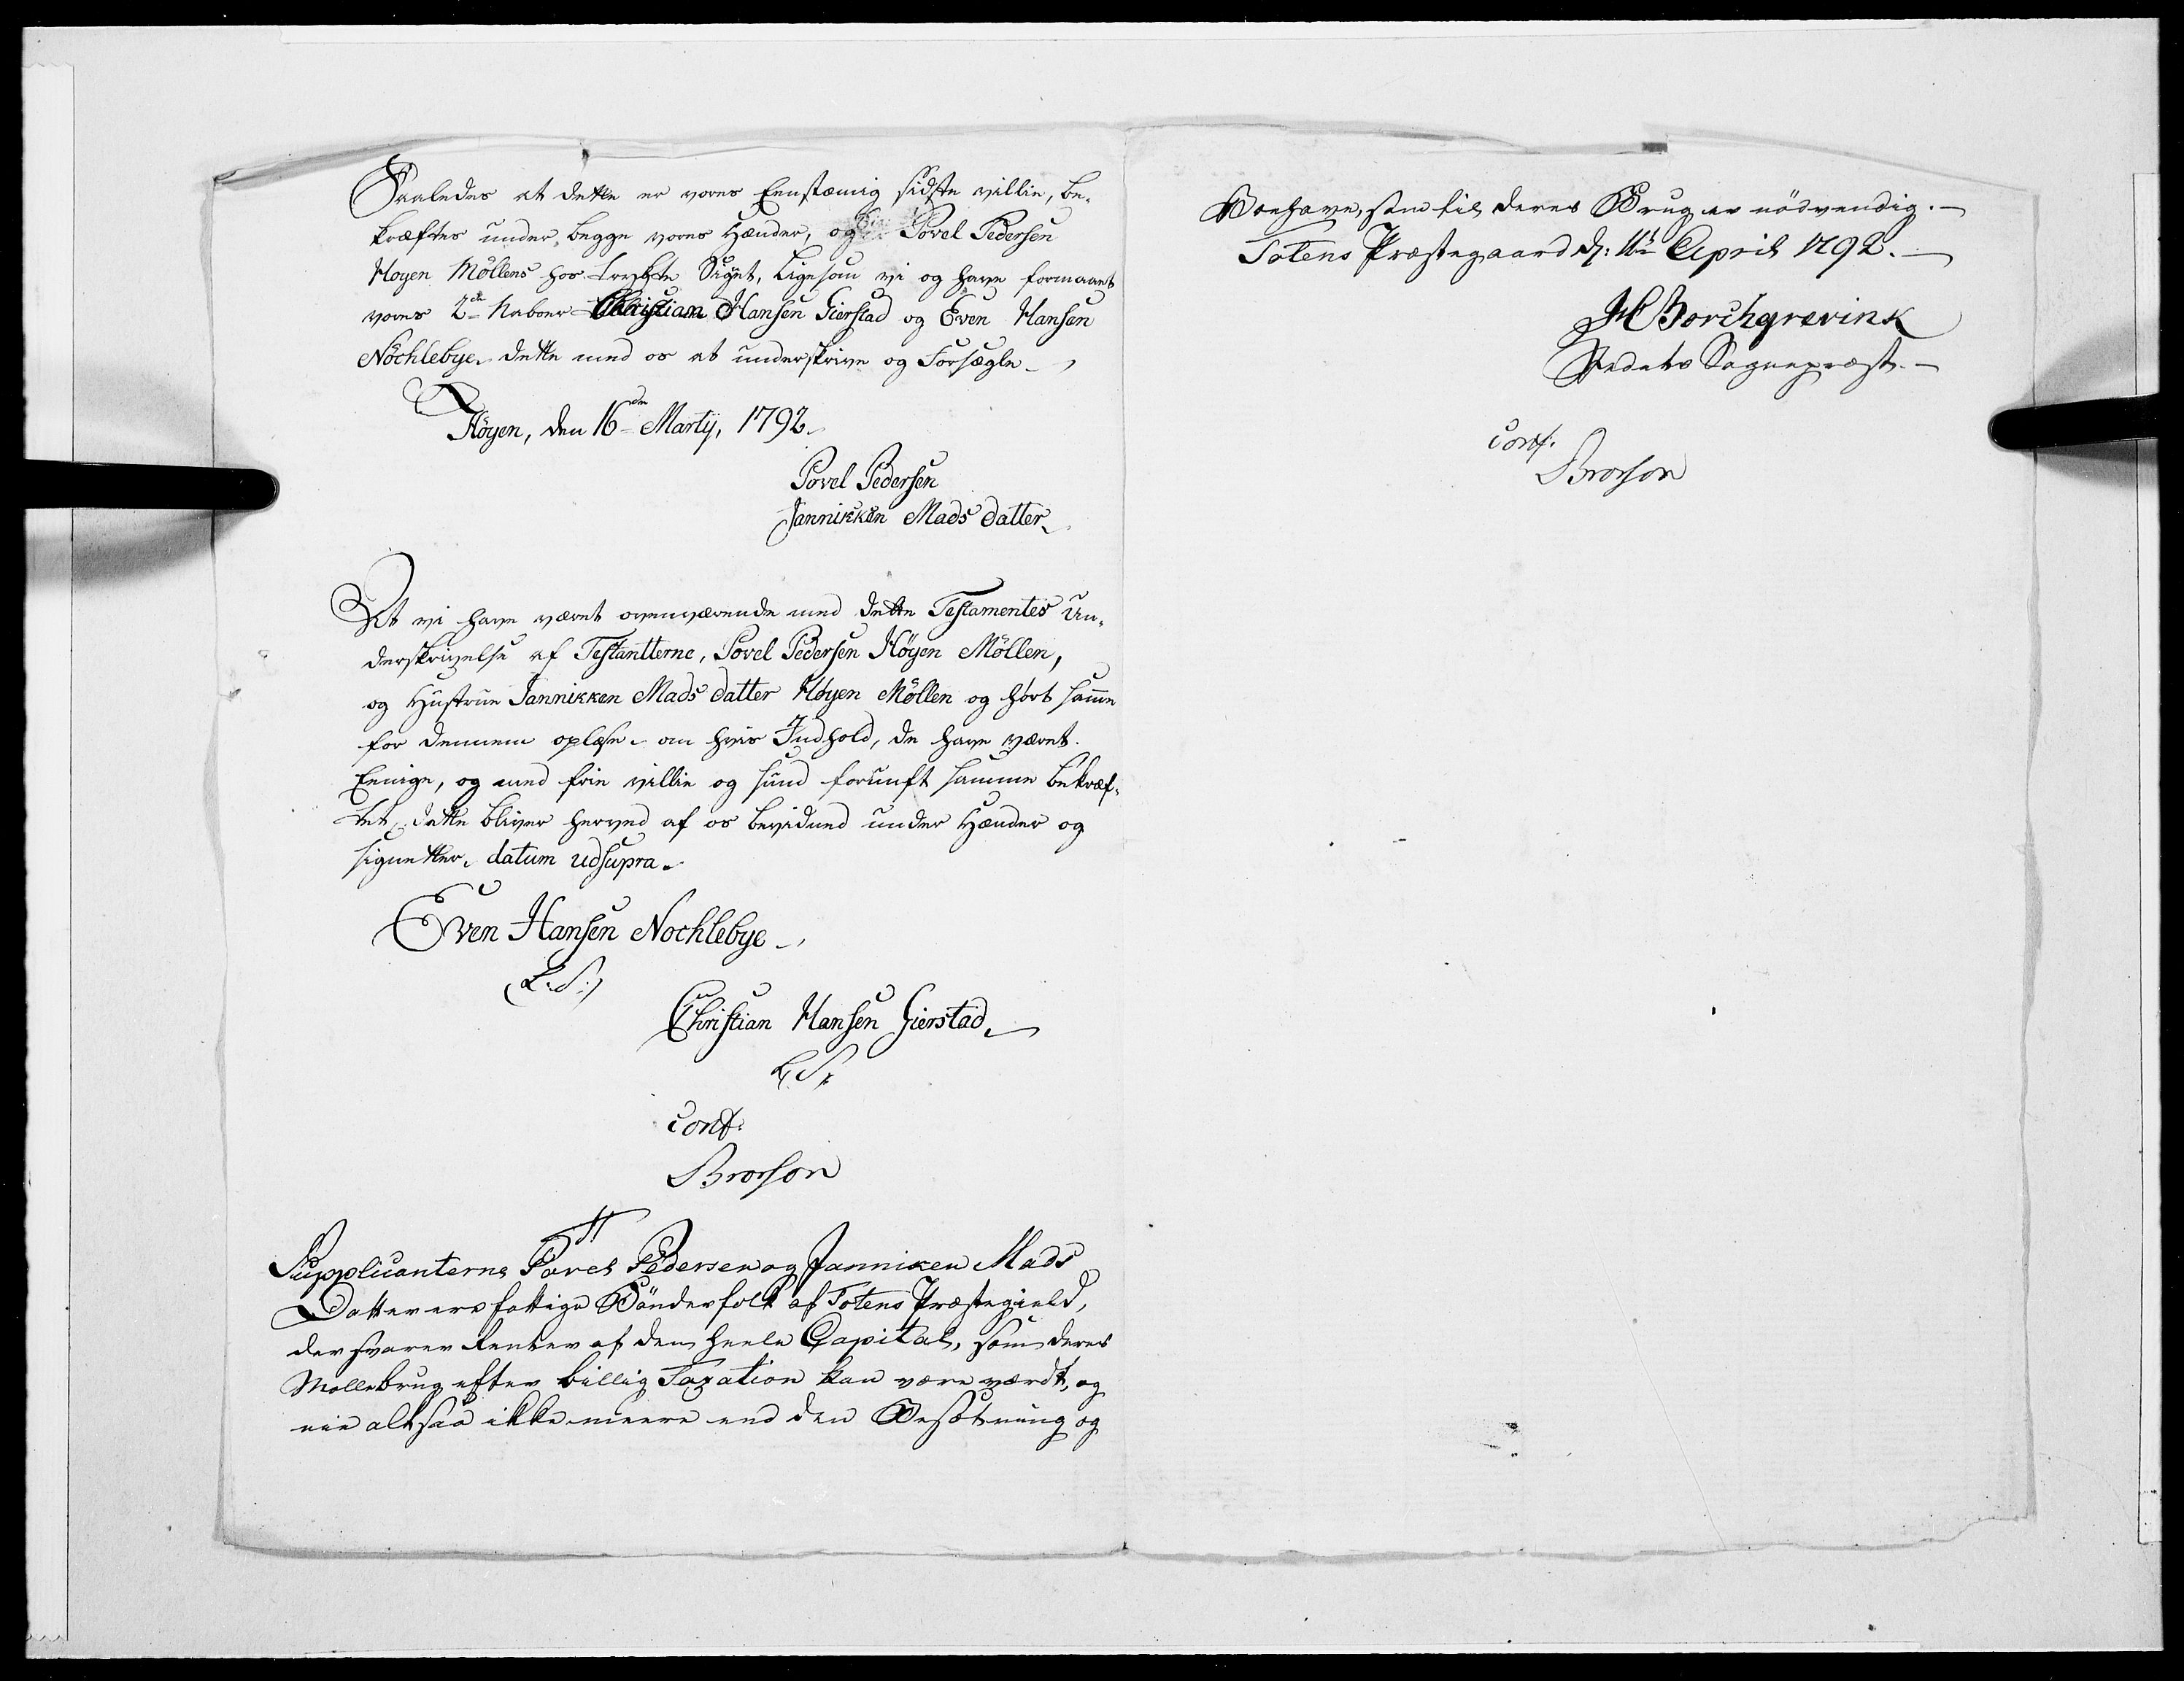 Saaledes at dette er vores Eenstæmig sidste villie, be-
kræftes under begge vores Hænder, og Povel Pedersen
Høyen Möllens hos trychte Signet, Ligesom vi og have formaaet
vores 2de Naboer Christian Hansen Gierstad og Even Hansen
Nöchlebye dette med os at underskrive og Forsægle
Höyen, den 16de Martij, 1792
Povel Pedersen
Jannikken Mads datter
At vi have været overværende med dette Testamentes Un-
derskrivelse af Testantterne, Povel Pedersen Höyen Möllen,
og Hustrue Jannikken Mads datter Høyen Möllen og hørt samme
for dennem oplæse om hvis Indhold, de have været
Eenige, og med frie villie og sund fornuft samme bekræf-
tet, dette bliver herved af os bevidned under Hænder og
signetter. datum udsupra
Even Hansen Nochlebye
(L.S.)
Christian Hansen Gierstad
L.S.
conf:
Brorson
Supplicanterne Povel Pedersen og Janniken Mads
Datter ere fattige Bönderfolk af Totens Præstegield,
der svarer Renter af den heele Capital, som deres
Mollebrug efter billig Taxation kan være værdt, og
eie altsaa ikke meere end den Besætning og
Boehave, som til deres Brug er nödvendig.
Totens Præstegaard d: 11t April 1792.
H Borchgrevink
Stedets Sognepræst.
conf:
Brorson